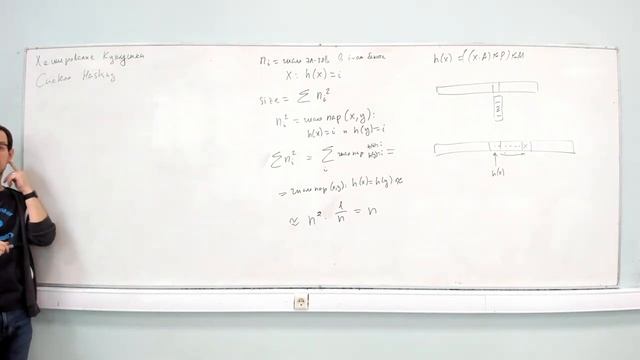 Хеширование Кукушки
Cuckoo Hashing
n_i = число эл-тов в i-ом бакете
x: h(x) = i
size = Σ n_i²
n_i² = число пар (x,y):
h(x)=i и h(y)=i
Σ n_i² = Σ число пар h(x)=i h(y)=i =
i
= число пар (x,y): h(x)=h(y) ≈
≈ n² · 1/n = n
h(x) = ((x·A)%P)%M
h(x)